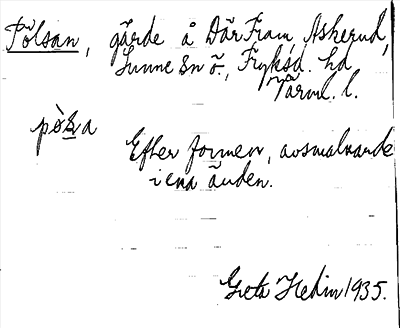 Pölsan, gärde å Där Fram, Askerud,
Sunne sn ö., Fryksd. hd
Värml. l.
Efter formen, avsmalnande
i ena änden.
Greta Hedin 1935.